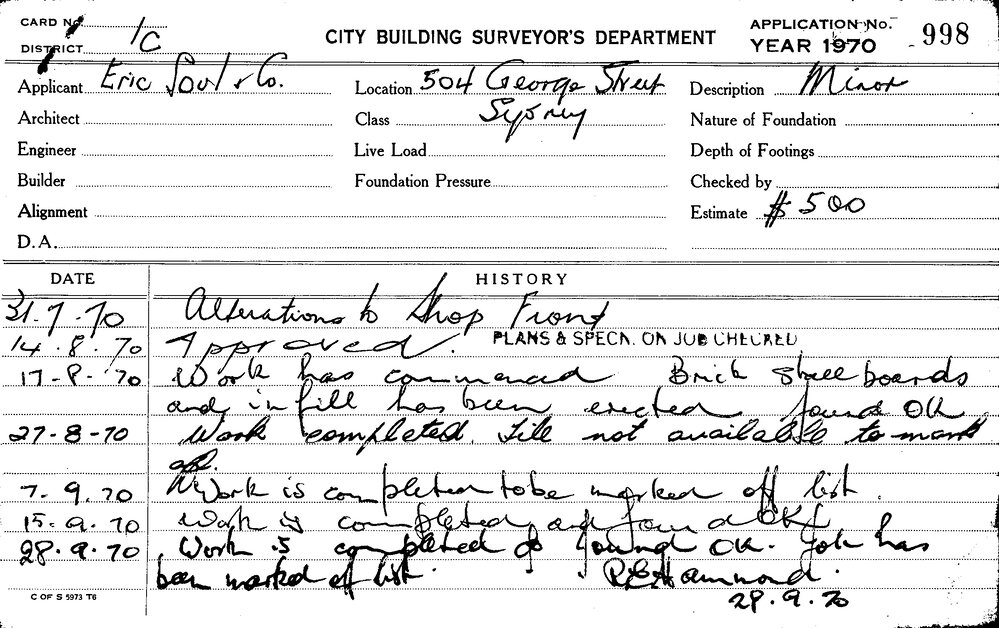 CARD No.
DISTRICT 1C
CITY BUILDING SURVEYOR'S DEPARTMENT
APPLICATION No. 998
YEAR 1970
Applicant Eric & Co. Location 504 George Street Description Minor
Architect Class Sydney Nature of Foundation
Engineer Live Load Depth of Footings
Builder Foundation Pressure Checked by
Alignment Estimate $500
D.A.
DATE HISTORY
31.7.70 Alterations to Shop Front
14.8.70 Approved. PLANS & SPECN. ON JOB CHECKED
17-8-70 Work has commenced Brick stall boards
and in fill has been erected found OK
27-8-70 Work completed. not available to mark
off.
7.9.70 Work is completed to be marked off list.
15.9.70 Work is completed and found OK
28.9.70 Work is completed & found OK. Job has
been marked off list. Hammond.
C OF S 5973 T6 29.9.70